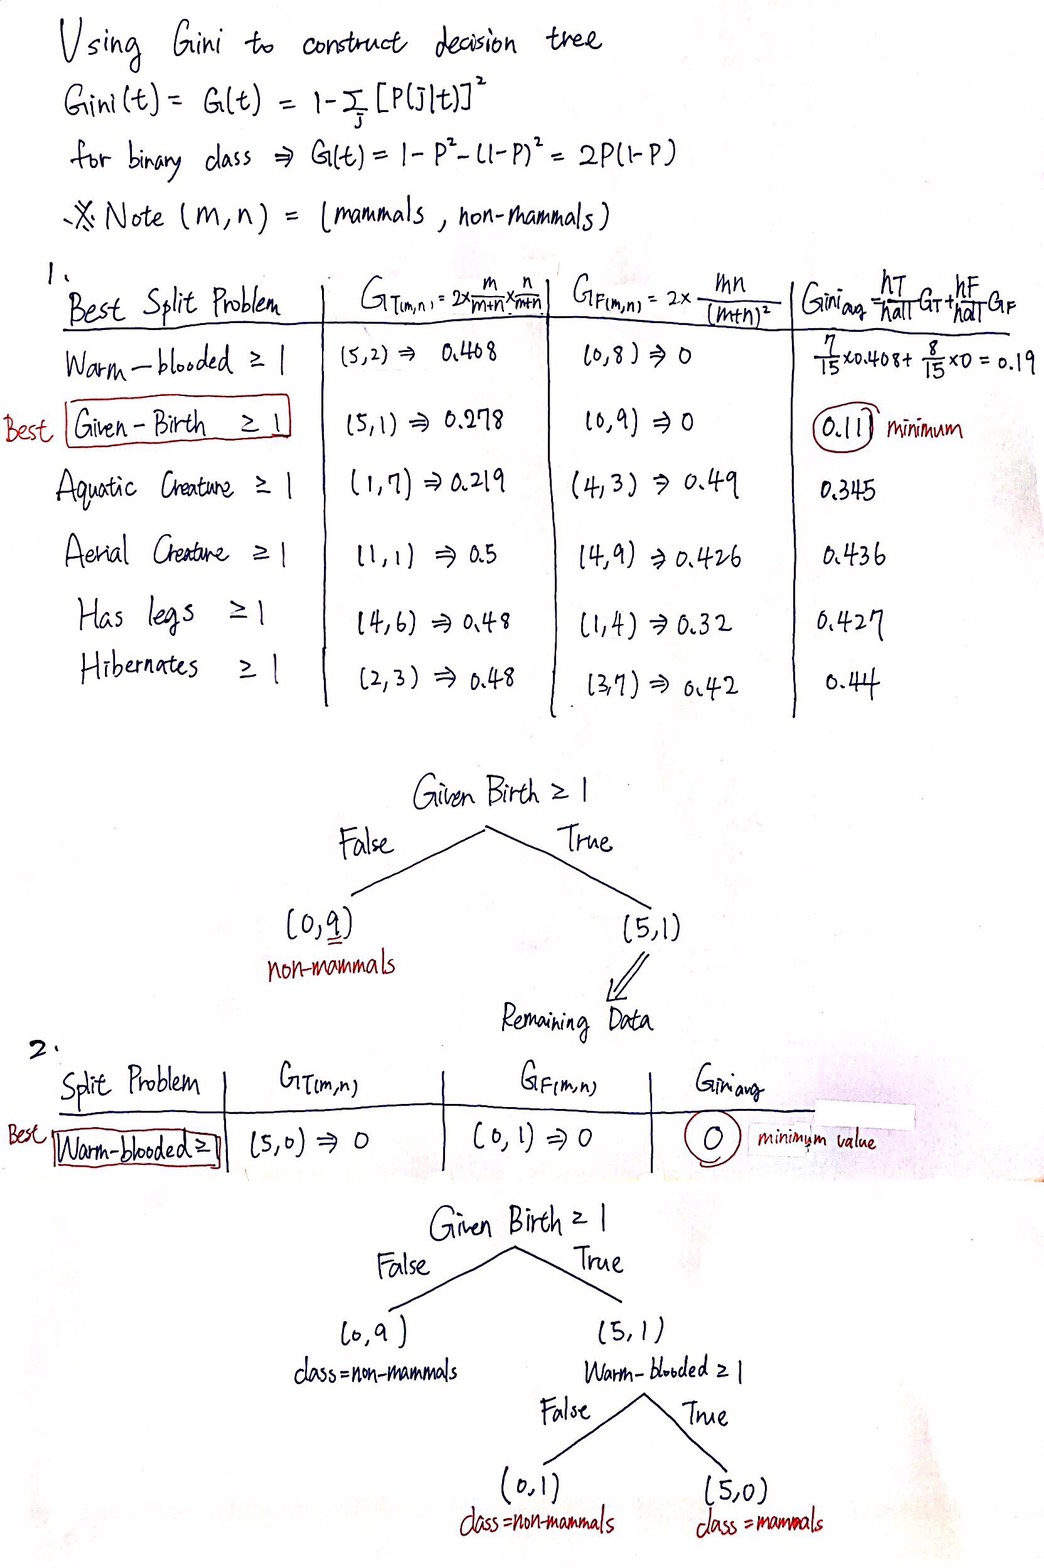 Using Gini to construct decision tree
Gini(t) = G(t) = 1-Σj [P(j|t)]²
for binary class ⇒ G(t) = 1-P²-(1-P)² = 2P(1-P)
※ Note (m,n) = (mammals, non-mammals)
1.
Best Split Problem | GT(m,n) = 2× m/m+n × n/m+n | GF(m,n) = 2× mn/(m+n)² | Giniavg = nT/nall GT + nF/nall GF
Warm-blooded ≥ 1 | (5,2) ⇒ 0.408 | (0,8) ⇒ 0 | 7/15 ×0.408+ 8/15 ×0 = 0.19
Best Given-Birth ≥ 1 | (5,1) ⇒ 0.278 | (0,9) ⇒ 0 | 0.111 minimum
Aquatic Creature ≥ 1 | (1,7) ⇒ 0.219 | (4,3) ⇒ 0.49 | 0.345
Aerial Creature ≥ 1 | (1,1) ⇒ 0.5 | (4,9) ⇒ 0.426 | 0.436
Has legs ≥ 1 | (4,6) ⇒ 0.48 | (1,4) ⇒ 0.32 | 0.427
Hibernates ≥ 1 | (2,3) ⇒ 0.48 | (3,7) ⇒ 0.42 | 0.44
Given Birth ≥ 1
False True
(0,9) (5,1)
non-mammals
Remaining Data
2.
Split Problem | GT(m,n) | GF(m,n) | Giniavg
Best Warm-blooded ≥1 | (5,0) ⇒ 0 | (0,1) ⇒ 0 | 0 minimum value
Given Birth ≥ 1
False True
(0,9) (5,1)
class=non-mammals Warm-blooded ≥ 1
False True
(0,1) (5,0)
class=non-mammals class=mammals